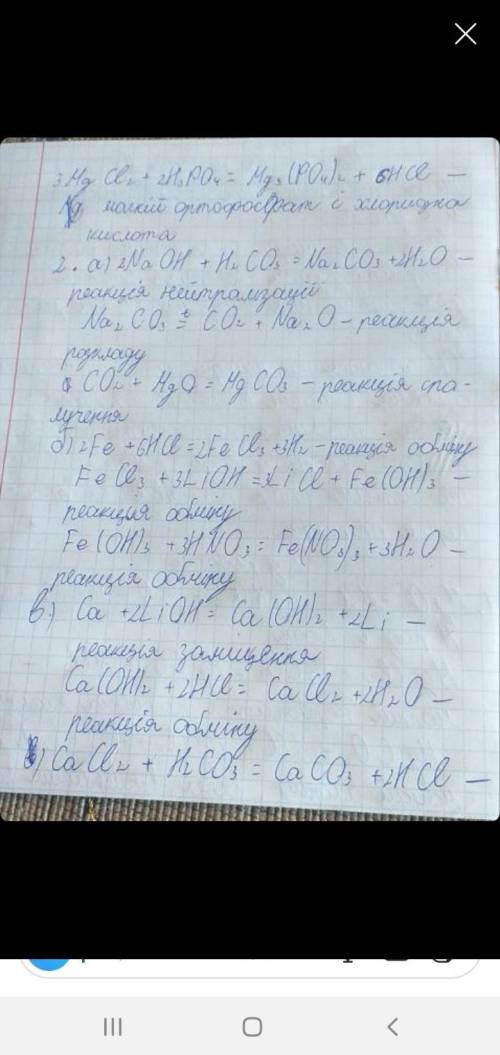 3MgCl₂ + 2H₃PO₄ = Mg₃(PO₄)₂ + 6HCl –
магній ортофосфат і хлоридна
кислота
2. а) 2NaOH + H₂CO₃ = Na₂CO₃ + 2H₂O –
реакція нейтралізації
Na₂CO₃ =t CO₂ + Na₂O – реакція
розкладу
CO₂ + MgO = MgCO₃ – реакція спо-
лучення
б) 2Fe + 6HCl = 2FeCl₃ + 3H₂ – реакція обміну
FeCl₃ + 3LiOH = 3LiCl + Fe(OH)₃ –
реакція обміну
Fe(OH)₃ + 3HNO₃ = Fe(NO₃)₃ + 3H₂O –
реакція обміну
в) Ca + 2LiOH = Ca(OH)₂ + 2Li –
реакція заміщення
Ca(OH)₂ + 2HCl = CaCl₂ + 2H₂O –
реакція обміну
) CaCl₂ + H₂CO₃ = CaCO₃ + 2HCl –